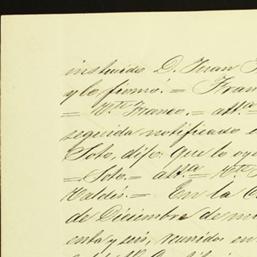 instruido D. Juan
y lo firmó.= Fran
= Vte Franco.= Atta
seguida notificado e
Soto, dijo: que lo oy
= Soto.= Atta Vte
Valdés.= En la C
de Diciembre de mi
enta y seis, reunidos en